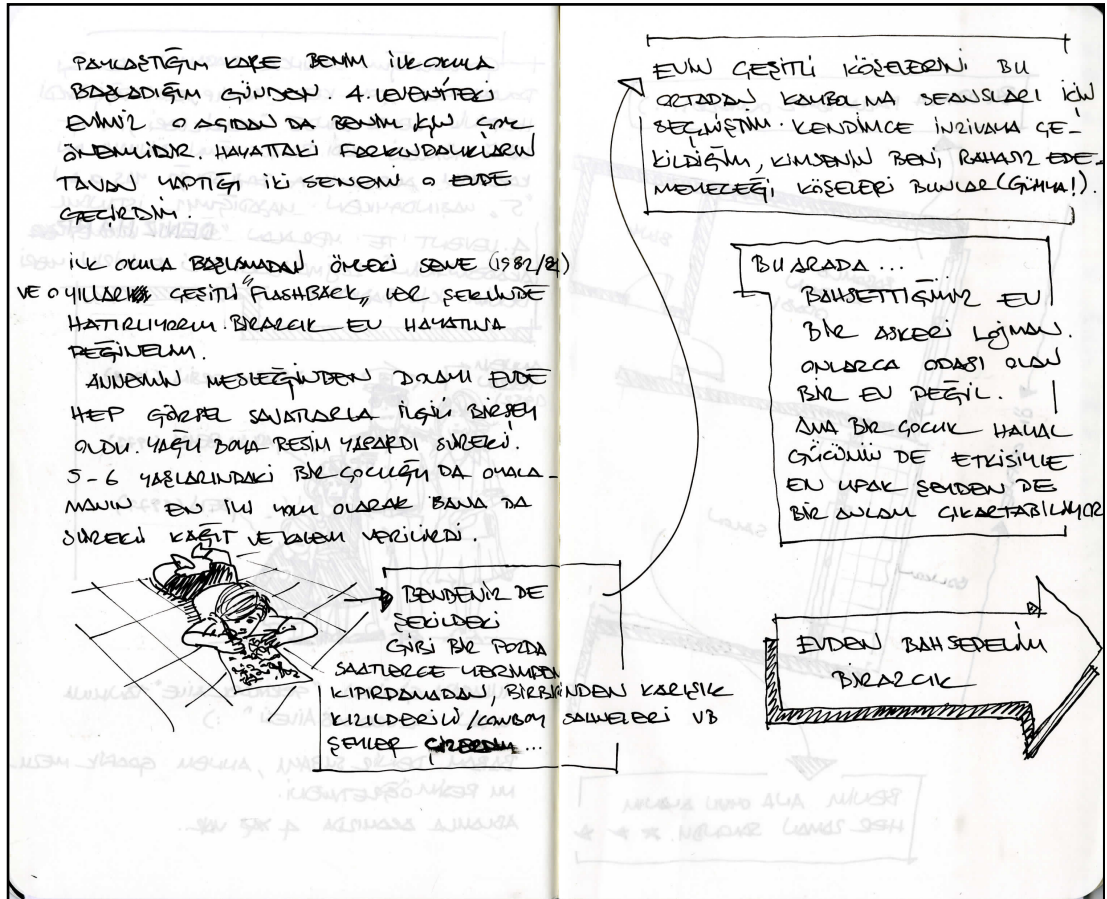 PAYLAŞTIĞIM KARE BENİM İLK OKULA
BAŞLADIĞIM GÜNDEN. 4. LEVENT'TEKİ
EVİMİZ O AÇIDAN DA BENİM İÇİN ÇOK
ÖNEMLİDİR. HAYATTAKİ FARKINDALIKLARIN
TAVAN YAPTIĞI İKİ SENEMİ O EVDE
GEÇİRDİM.
İLK OKULA BAŞLAMADAN ÖNCEKİ SENE (1982/81)
VE O YILLARI ÇEŞİTLİ "FLASHBACK" LER ŞEKLİNDE
HATIRLIYORUM. BİRAZCIK EV HAYATINA
DEĞİNELİM.
ANNEMİN MESLEĞİNDEN DOLAYI EVDE
HEP GÖRSEL SANATLARLA İLGİLİ BİRŞEY
OLDU. YAĞLI BOYA RESİM YAPARDI SÜREKLİ.
5-6 YAŞLARINDAKİ BİR ÇOCUĞU DA OYALA-
MANIN EN İYİ YOLU OLARAK BANA DA
SÜREKLİ KAĞIT VE KALEM VERİLİRDİ.
BENDENİZ DE
ŞEKİLDEKİ
GİBİ BİR POZDA
SAATLERCE YERİMDEN
KIPIRDAMADAN, BİRBİRİNDEN KARIŞIK
KIZILDERİLİ/COWBOY SAHNELERİ VB
ŞEYLER ÇİZERDİM...
EVİN ÇEŞİTLİ KÖŞELERİNİ BU
ORTADAN KAYBOLMA SEANSLARI İÇİN
SEÇMİŞTİM. KENDİMCE İNZİVAYA ÇE-
KİLDİĞİM, KİMSENİN BENİ, RAHATSIZ EDE-
MEYECEĞİ KÖŞELERİ BUNLAR (GÜYYA!).
BU ARADA ...
BAHSETTİĞİMİZ EV
BİR ASKERİ LOJMAN.
ONLARCA ODASI OLAN
BİR EV DEĞİL.
AMA BİR ÇOCUK HAYAL
GÜCÜNÜN DE ETKİSİYLE
EN UFAK ŞEYDEN DE
BİR ANLAM ÇIKARTABİLİYOR
EVDEN BAHSEDELİM
BİRAZCIK